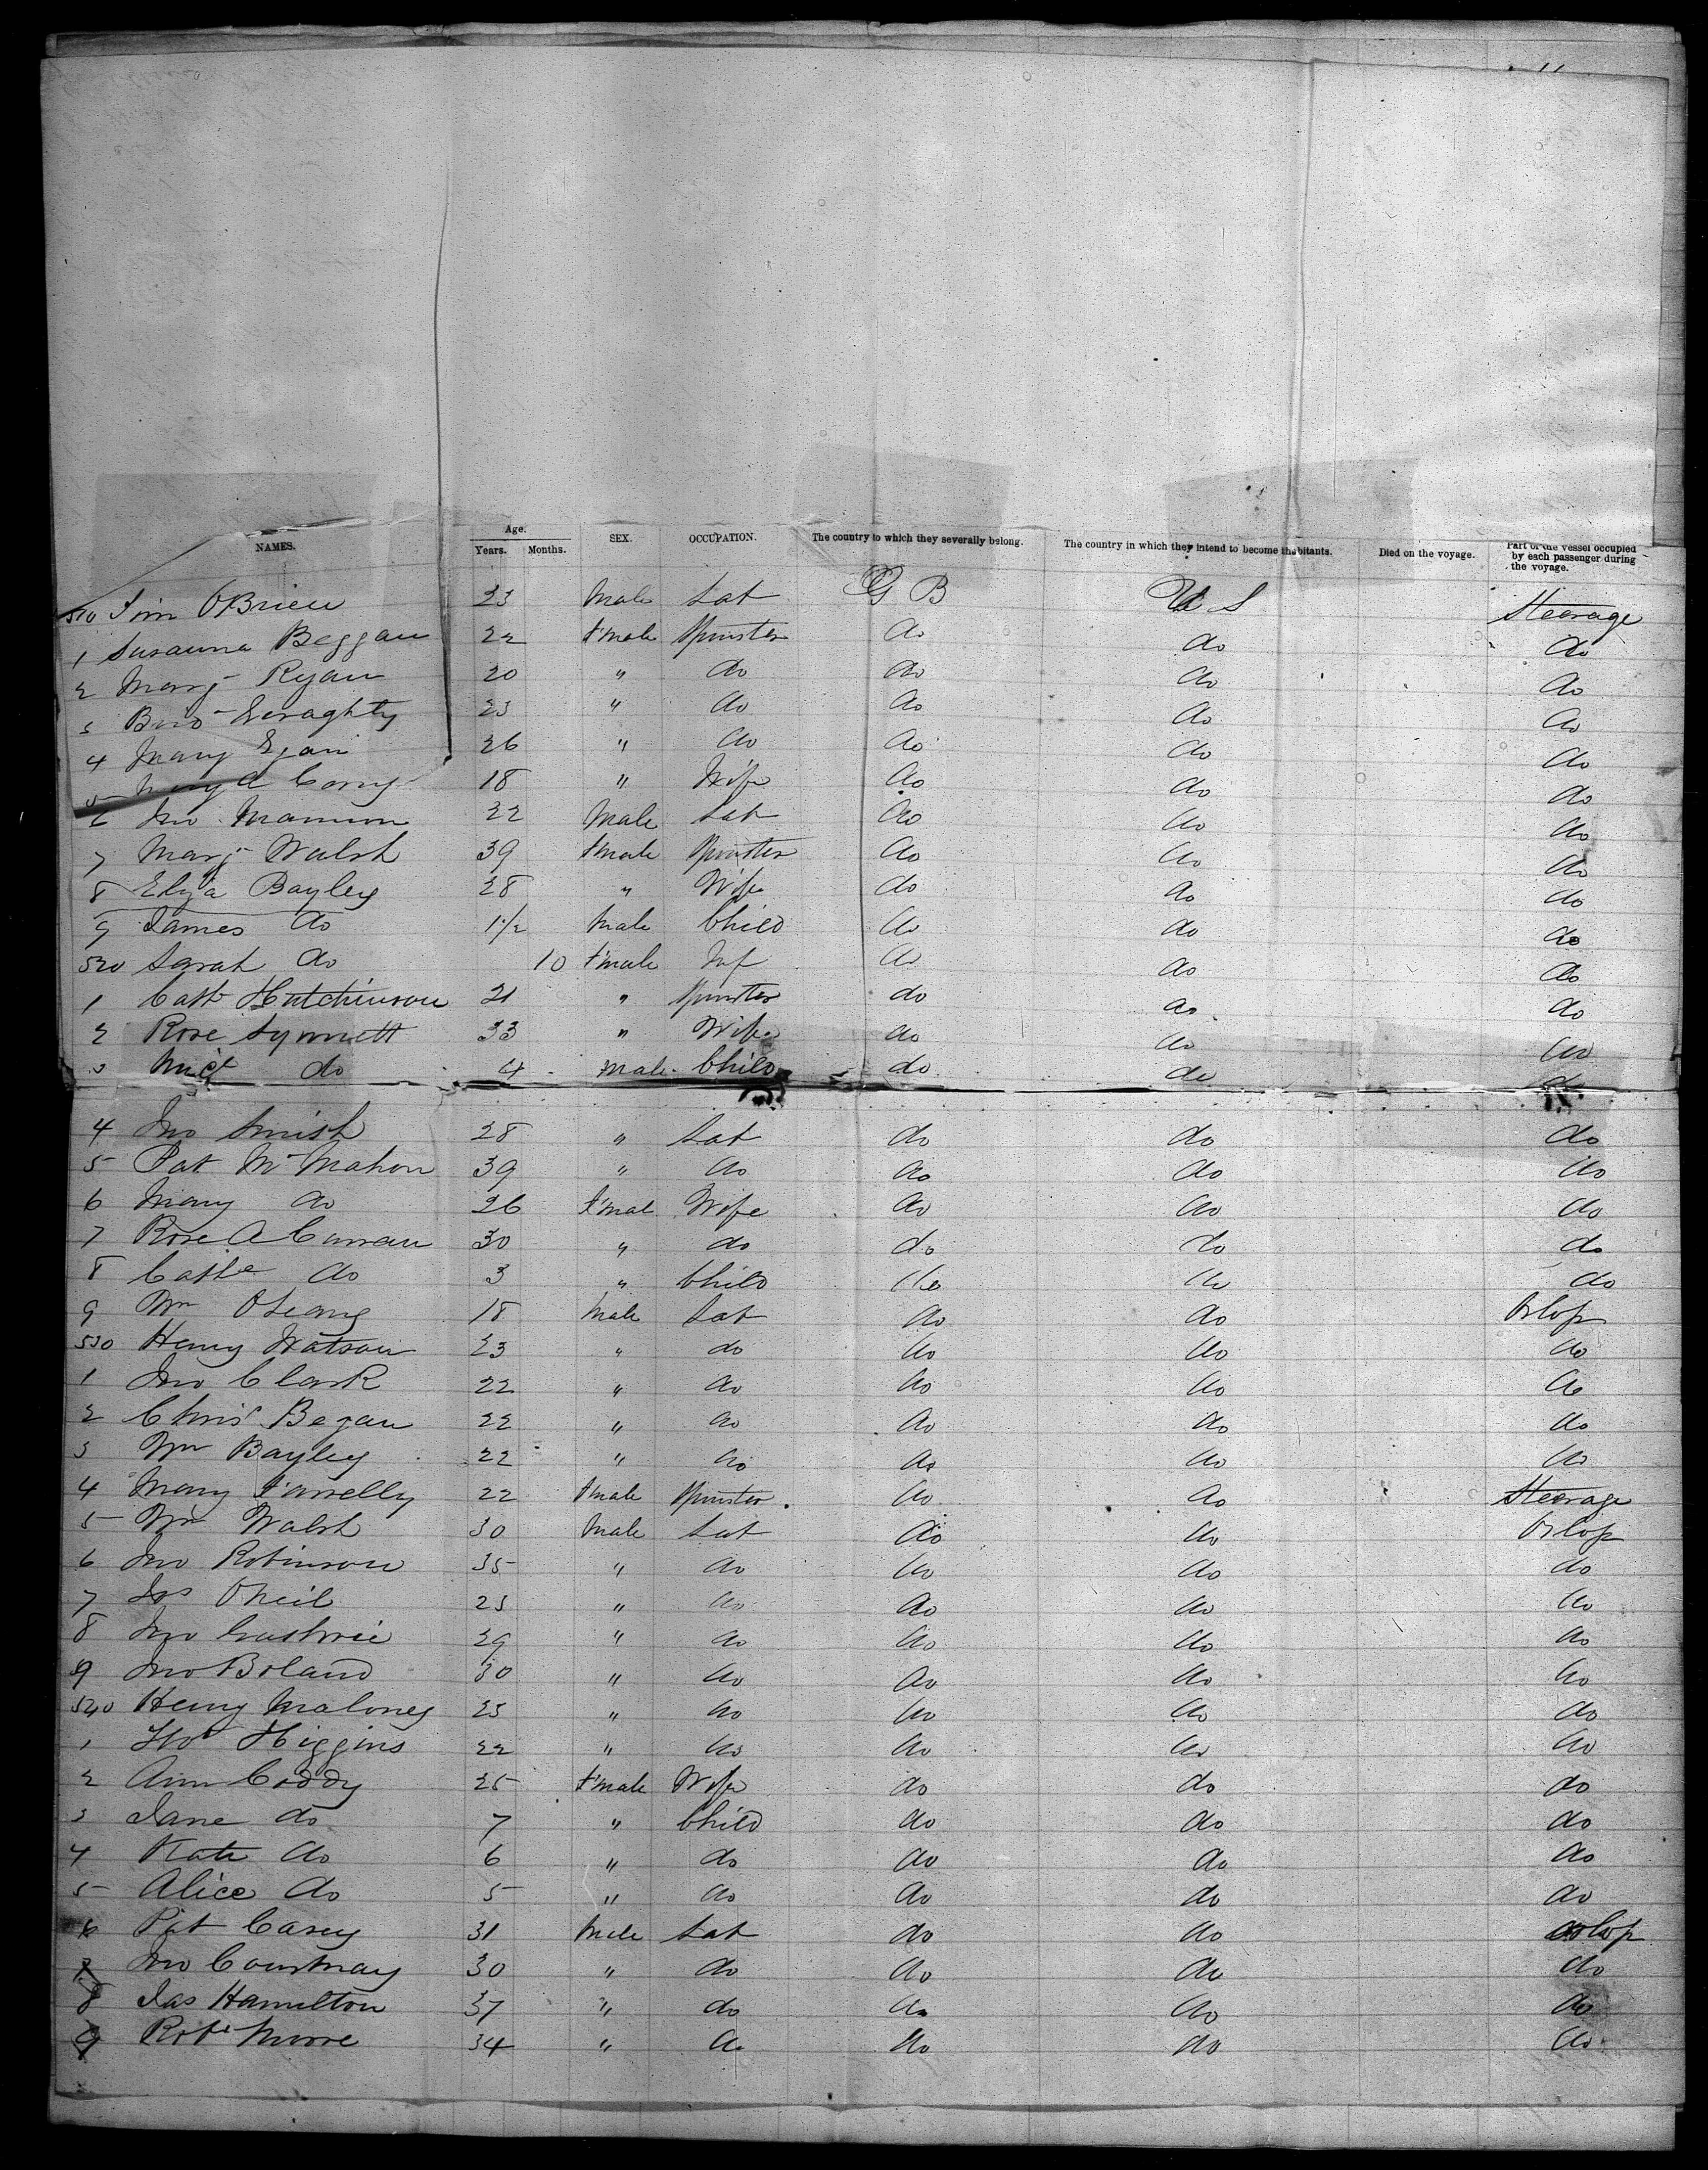 NAMES. Age. Years. Months. SEX. OCCUPATION. The country to which they severally belong. The country in which they intend to become inhabitants. Died on the voyage. Part of the vessel occupied by each passenger during the voyage.
510 Tim OBrien 23 Male Lab G B U S Steerage
1 Susanna Beggan 22 Fmale Spinster do do do
2 Mary Ryan 20 " do do do do
3 Geraghty 23 " do do do do
4 Mary Egan 26 " do do do do
5 18 " Wife do do do
6 Jno 22 Male Lab do do do
7 Mary Walsh 39 Fmale Spinster do do do
8 Eliza Bayley 28 " Wife do do do
9 James do 1½ Male Child do do do
520 Sarah do 10 Fmale Inf do do do
1 Cath Hutchinson 21 " Spinster do do do
2 Rose Synnett 33 " Wife do do do
3 Micl do 4 Male Child do do do
4 Jno Smith 28 " Lab do do do
5 Pat McMahon 39 " do do do do
6 Mary do 26 Fmal Wife do do do
7 Rose A Curran 30 " do do do do
8 Cathe do 3 " Child do do do
9 Wm OLeary 18 Male Lab do do Orlop
530 Henry Watson 23 " do do do do
1 Jno Clark 22 " do do do do
2 Chris Began 22 " do do do do
3 Wm Bayley 22 " do do do do
4 Mary Farrelly 22 Fmale Spinster do do Steerage
5 Wm Walsh 30 Male Lab do do Orlop
6 Jno Robinson 35 " do do do do
7 Jas ONeil 23 " do do do do
8 Jno Guthrie 29 " do do do do
9 Jno Boland 30 " do do do do
540 Henry Maloney 23 " do do do do
1 Higgins 22 " do do do do
2 Ann Coddy 25 Fmale Wife do do do
3 Jane do 7 " Child do do do
4 Kate do 6 " do do do do
5 Alice do 5 " do do do do
6 Pat Casey 31 Male Lab do do Orlop
7 Jno Courtnay 30 " do do do do
8 Jas Hamilton 37 " do do do do
9 Robt Moore 34 " do do do do